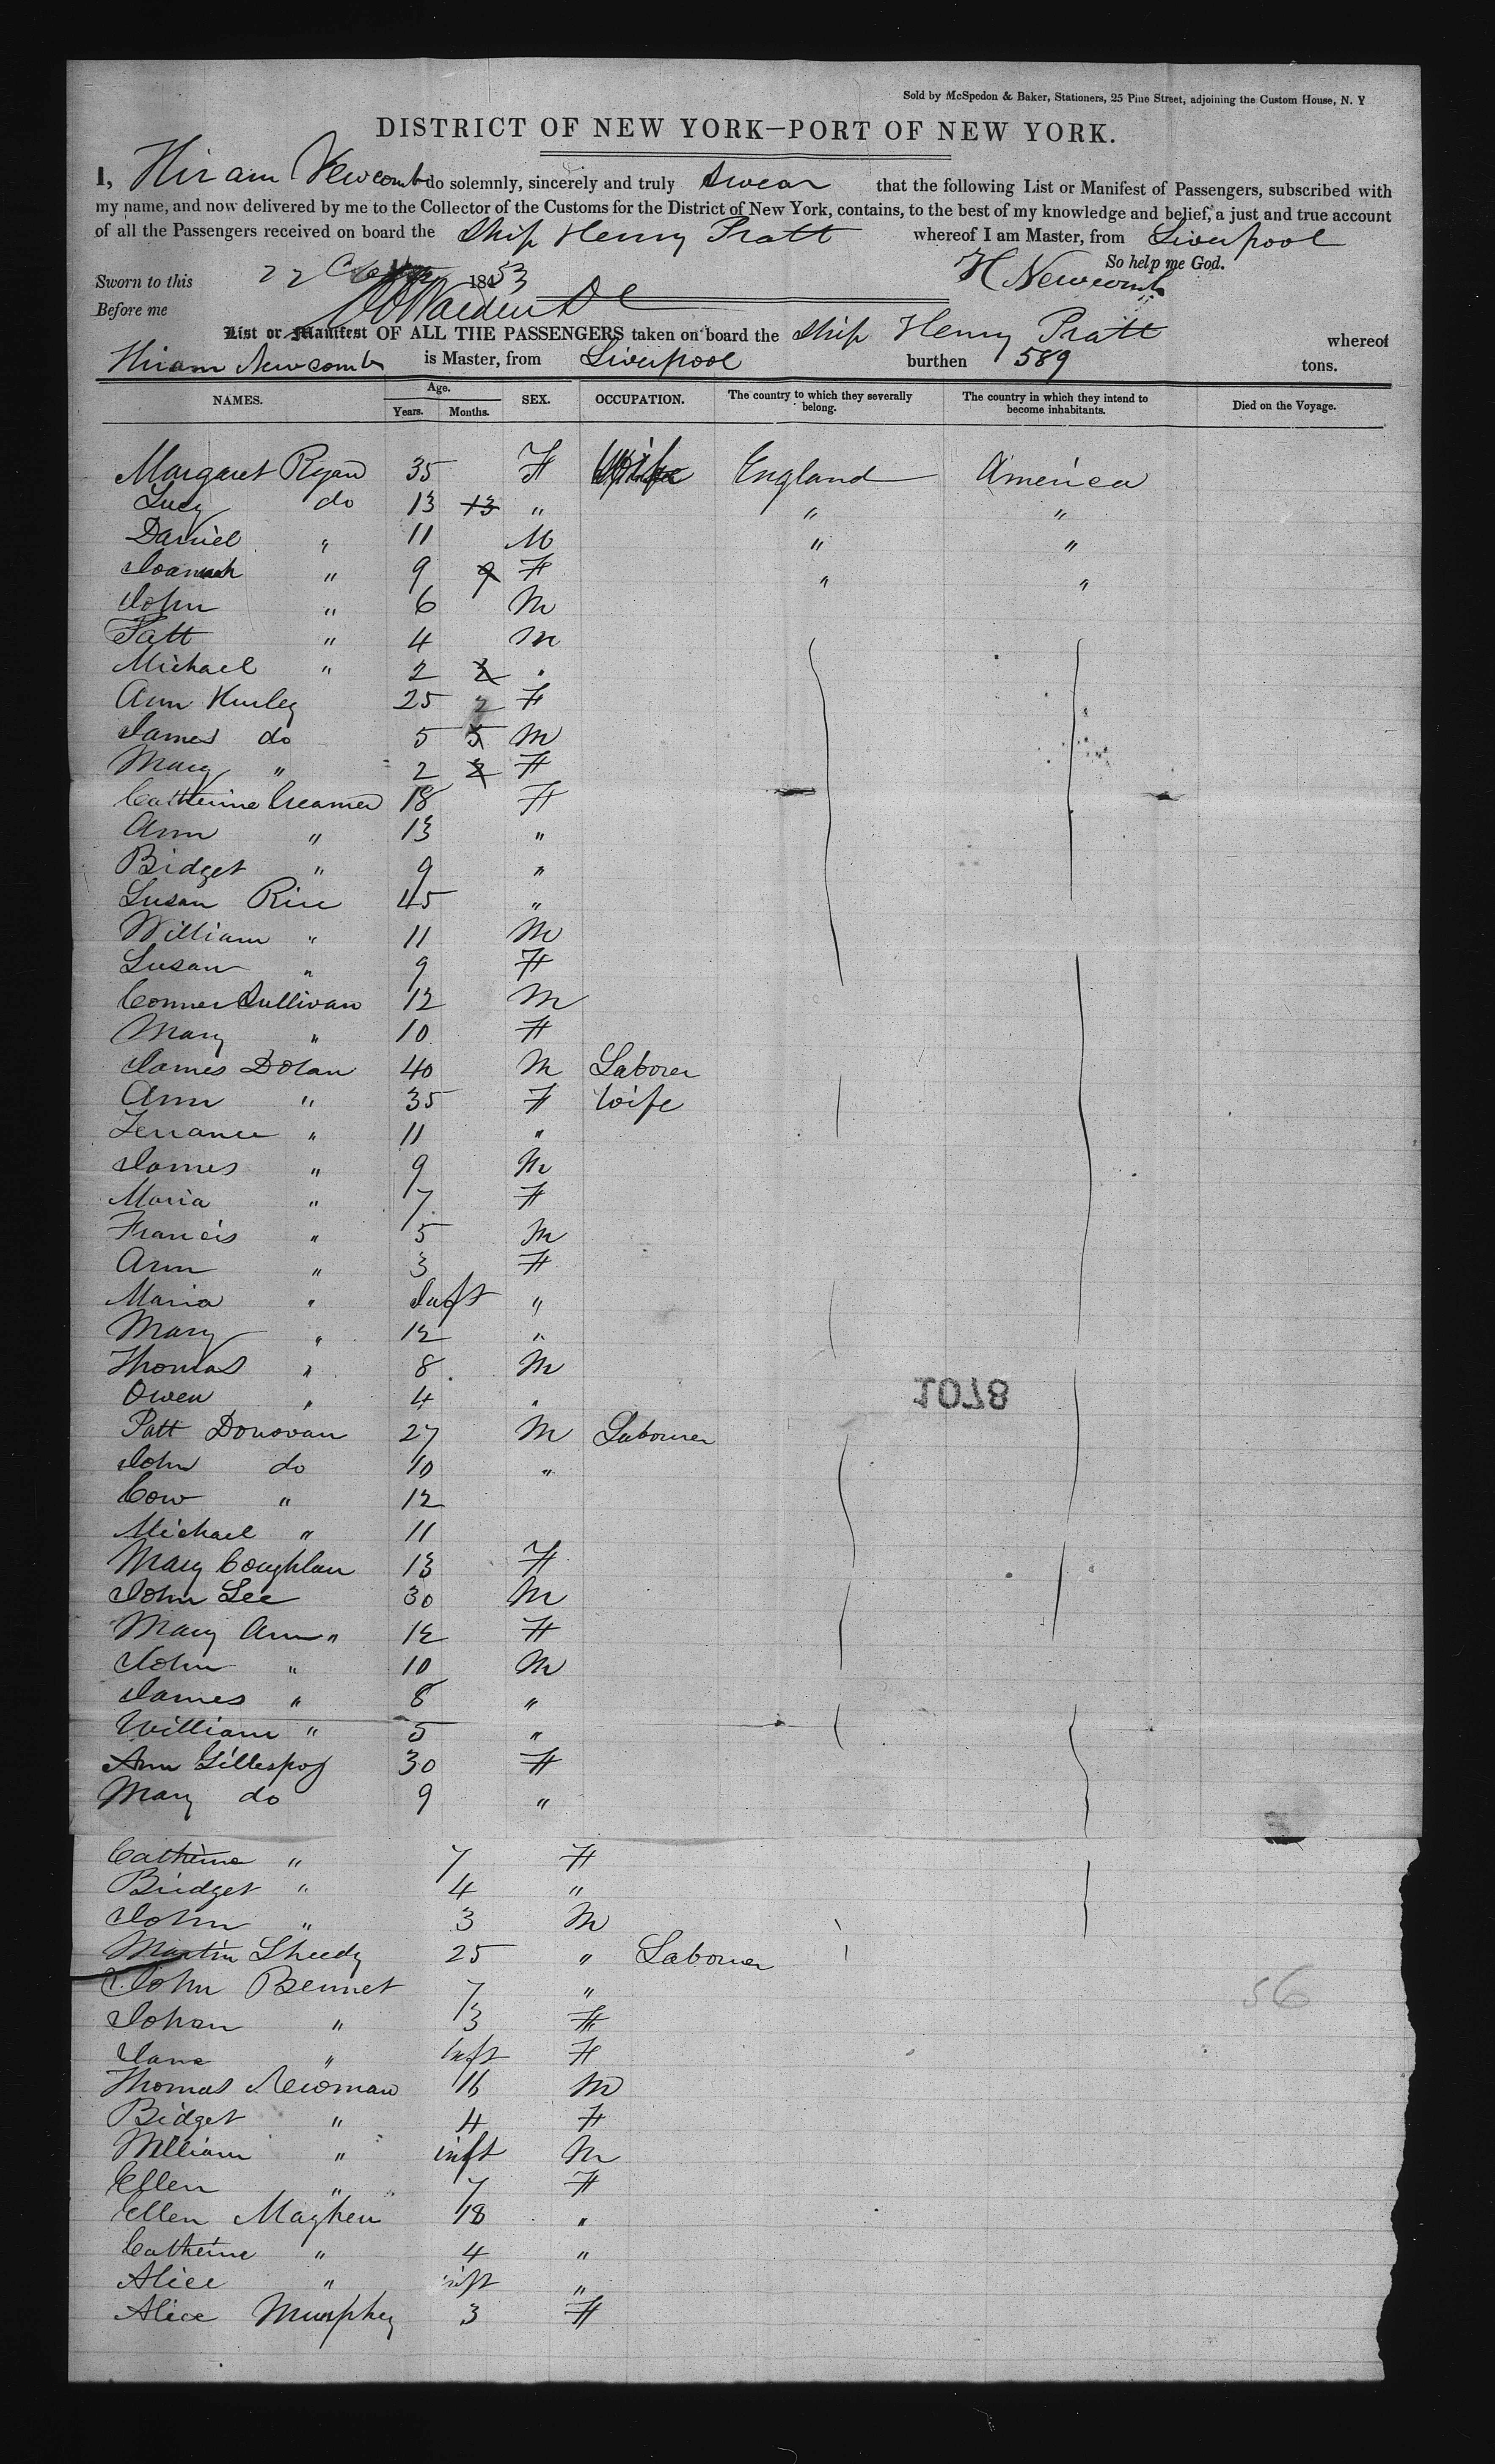 Sold by McSpedon & Baker, Stationers, 25 Pine Street, adjoining the Custom House, N. Y
DISTRICT OF NEW YORK—PORT OF NEW YORK.
I, Hiram Newcomb do solemnly, sincerely and truly swear that the following List or Manifest of Passengers, subscribed with
my name, and now delivered by me to the Collector of the Customs for the District of New York, contains, to the best of my knowledge and belief, a just and true account
of all the Passengers received on board the Ship Henry Pratt whereof I am Master, from Liverpool
So help me God.
Sworn to this 22 1853 H Newcomb
Before me
List or Manifest OF ALL THE PASSENGERS taken on board the Ship Henry Pratt whereof
Hiram Newcomb is Master, from Liverpool burthen 589 tons.
NAMES. Age. Years. Months. SEX. OCCUPATION. The country to which they severally belong. The country in which they intend to become inhabitants. Died on the Voyage.
Margaret Ryan 35 F Wife England America
Lucy do 13 13 " " "
Daniel " 11 M " "
Joannah " 9 9 F " "
John " 6 M
Patt " 4 M
Michael " 2 2 "
Ann Hurley 25 2 F
James do 5 5 M
Mary " 2 2 F
Catherine Creamer 18 F
Ann " 13 "
Bidget " 9 "
Susan Rice 45 "
William " 11 M
Susan " 9 F
Conner Sullivan 12 M
Mary " 10 F
James Dolan 40 M Laborer
Ann " 35 F Wife
Terrance " 11 "
James " 9 M
Maria " 7 F
Francis " 5 M
Ann " 3 F
Maria " Inft "
Mary " 12 "
Thomas " 8 M
Owen " 4 "
1078
Patt Donovan 27 M Labourer
John do 10 "
Con " 12
Michael " 11
Mary Coughlan 13 F
John Lee 30 M
Mary Ann " 12 F
John " 10 M
James " 8 "
William " 5 "
Ann Gillespoy 30 F
Mary do 9 "
Catherine " 7 F
Bridget " 4 "
John " 3 M
Martin Sheedy 25 " Labourer
John Bennet 7 "
56
Johan " 3 F
Jane " Inft F
Thomas Newman 16 M
Bidget " 4 F
William " inft M
Ellen " 7 F
Ellen Maghen 18 "
Catherine " 4 "
Alice " inft "
Alice Murphey 3 F